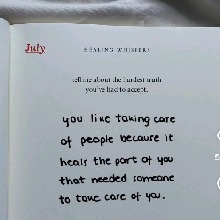 July
HEALING WHISPERS
tell me about the hardest truth
you've had to accept.
you like taking care
of people because it
heals the part of you
that needed someone
to take care of you.